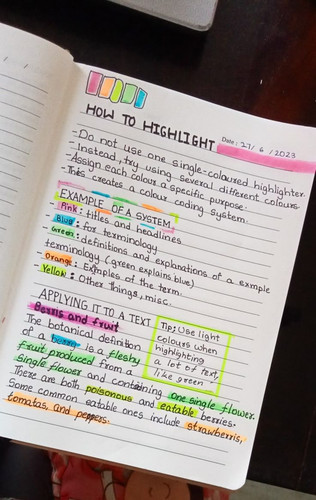 HOW TO HIGHLIGHT
Date: 27/6/2023
- Do not use one single-coloured highlighter.
- Instead, try using several different colours.
- Assign each colour a specific purpose.
- This creates a colour coding system.
EXAMPLE OF A SYSTEM
- Pink: titles and headlines
- Blue: for terminology
- Green: definitions and explanations of a exmple
terminology (green explains blue)
- Orange: Examples of the term.
- Yellow: Other things, misc.
APPLYING IT TO A TEXT
Berris and fruit
The botanical definition
of a berry is a fleshy
fruit produced from a
single flower and containing one single flower.
There are both poisonous and eatable berries.
Some common eatable ones include strawberris,
tomatas, and peppers.
Tip: Use light
colours when
highlighting
a lot of text,
like green